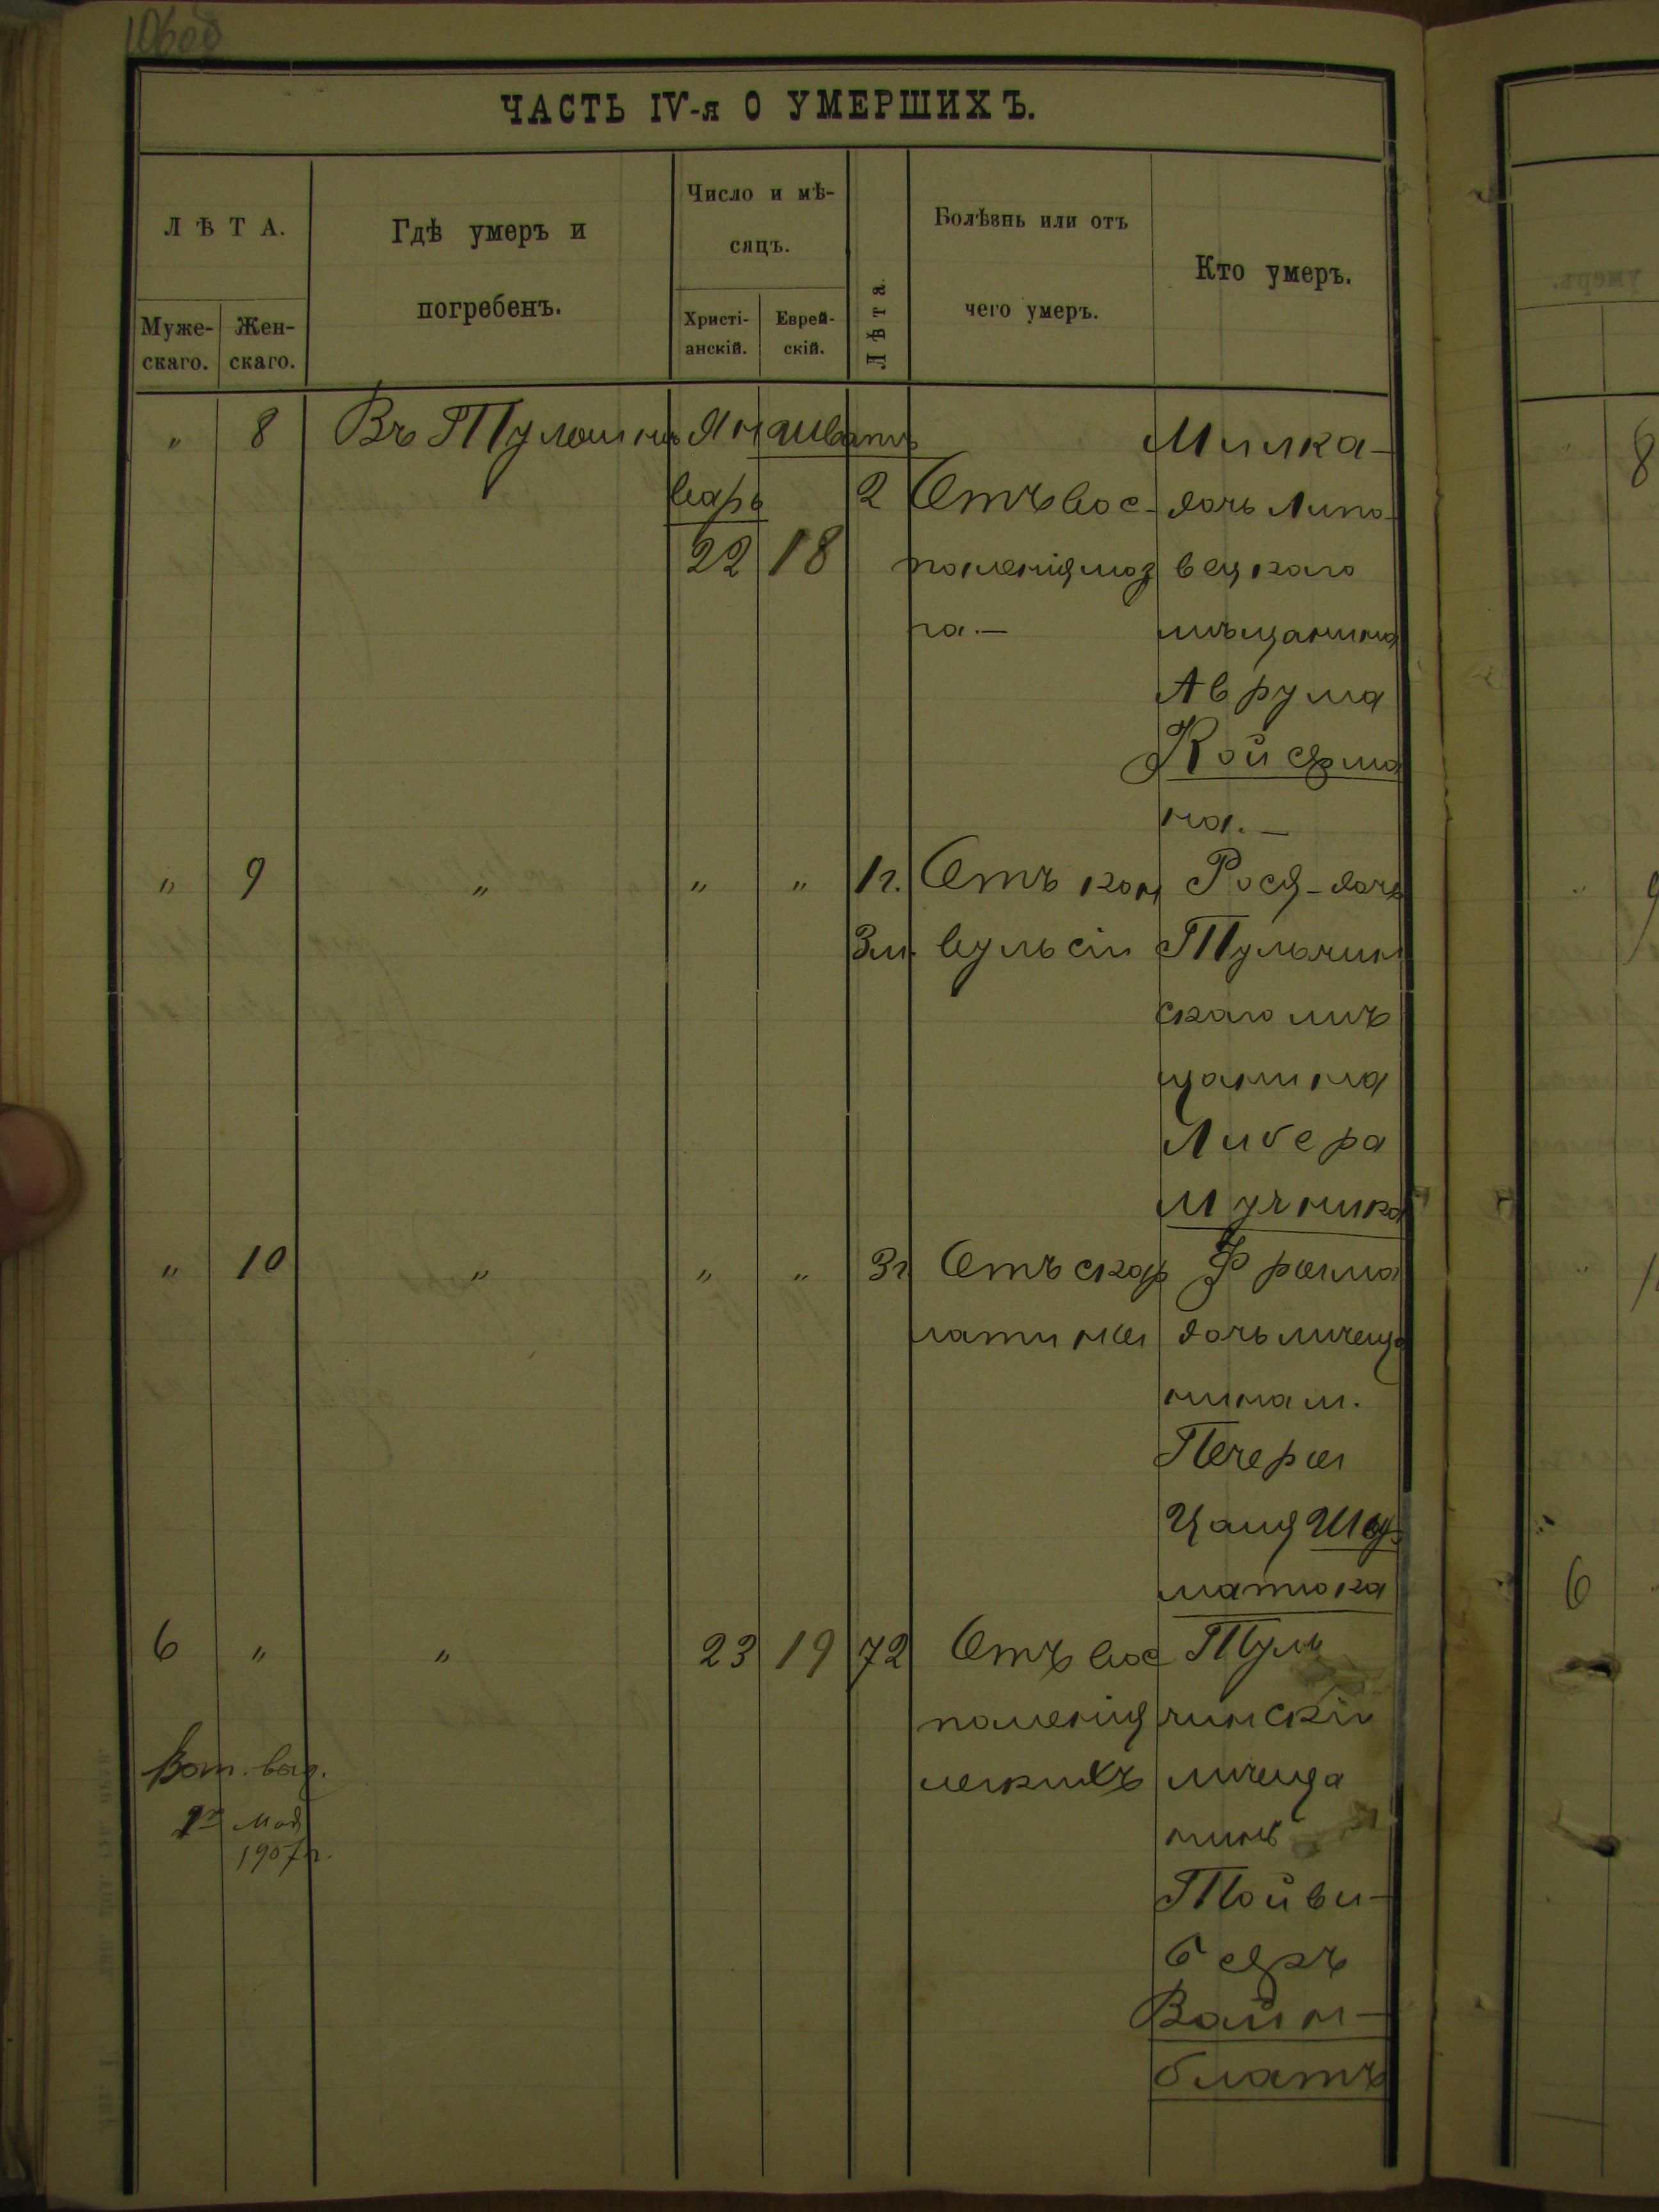 ЧАСТЬ IV-я О УМЕРШИХЪ.
ЛѢТА.
Муже-
скаго.
Жен-
скаго.
Гдѣ умеръ и
погребенъ.
Число и мѣ-
сяцъ.
Христі-
анскій.
Еврей-
скій.
Лѣта.
Болѣзнь или отъ
чего умеръ.
Кто умеръ.
" 8 Въ Янв шватъ
варь
22 18
2 Отъ вос-
паленія моз
га.—
Милка-
дочь Липо-
вецкаго
мѣщанина
Аврума
Койфма
на.—
" 9 " " " 1г.
3м.
Отъ кон
вульсіи
Рося-дочь
Тульчин
скаго мѣ
щанина
Либера
Мучника
" 10 " " " 3г
Отъ скар
латины
Фрима
дочь мѣща
нина м.
Печеры
матюка
6 " " 23 19 72
Отъ вос
паленія
легкихъ
Туль
чинскій
мѣща
нинъ
Тойви-
беръ
Вайн-
блатъ
выд.
мая
1907г.